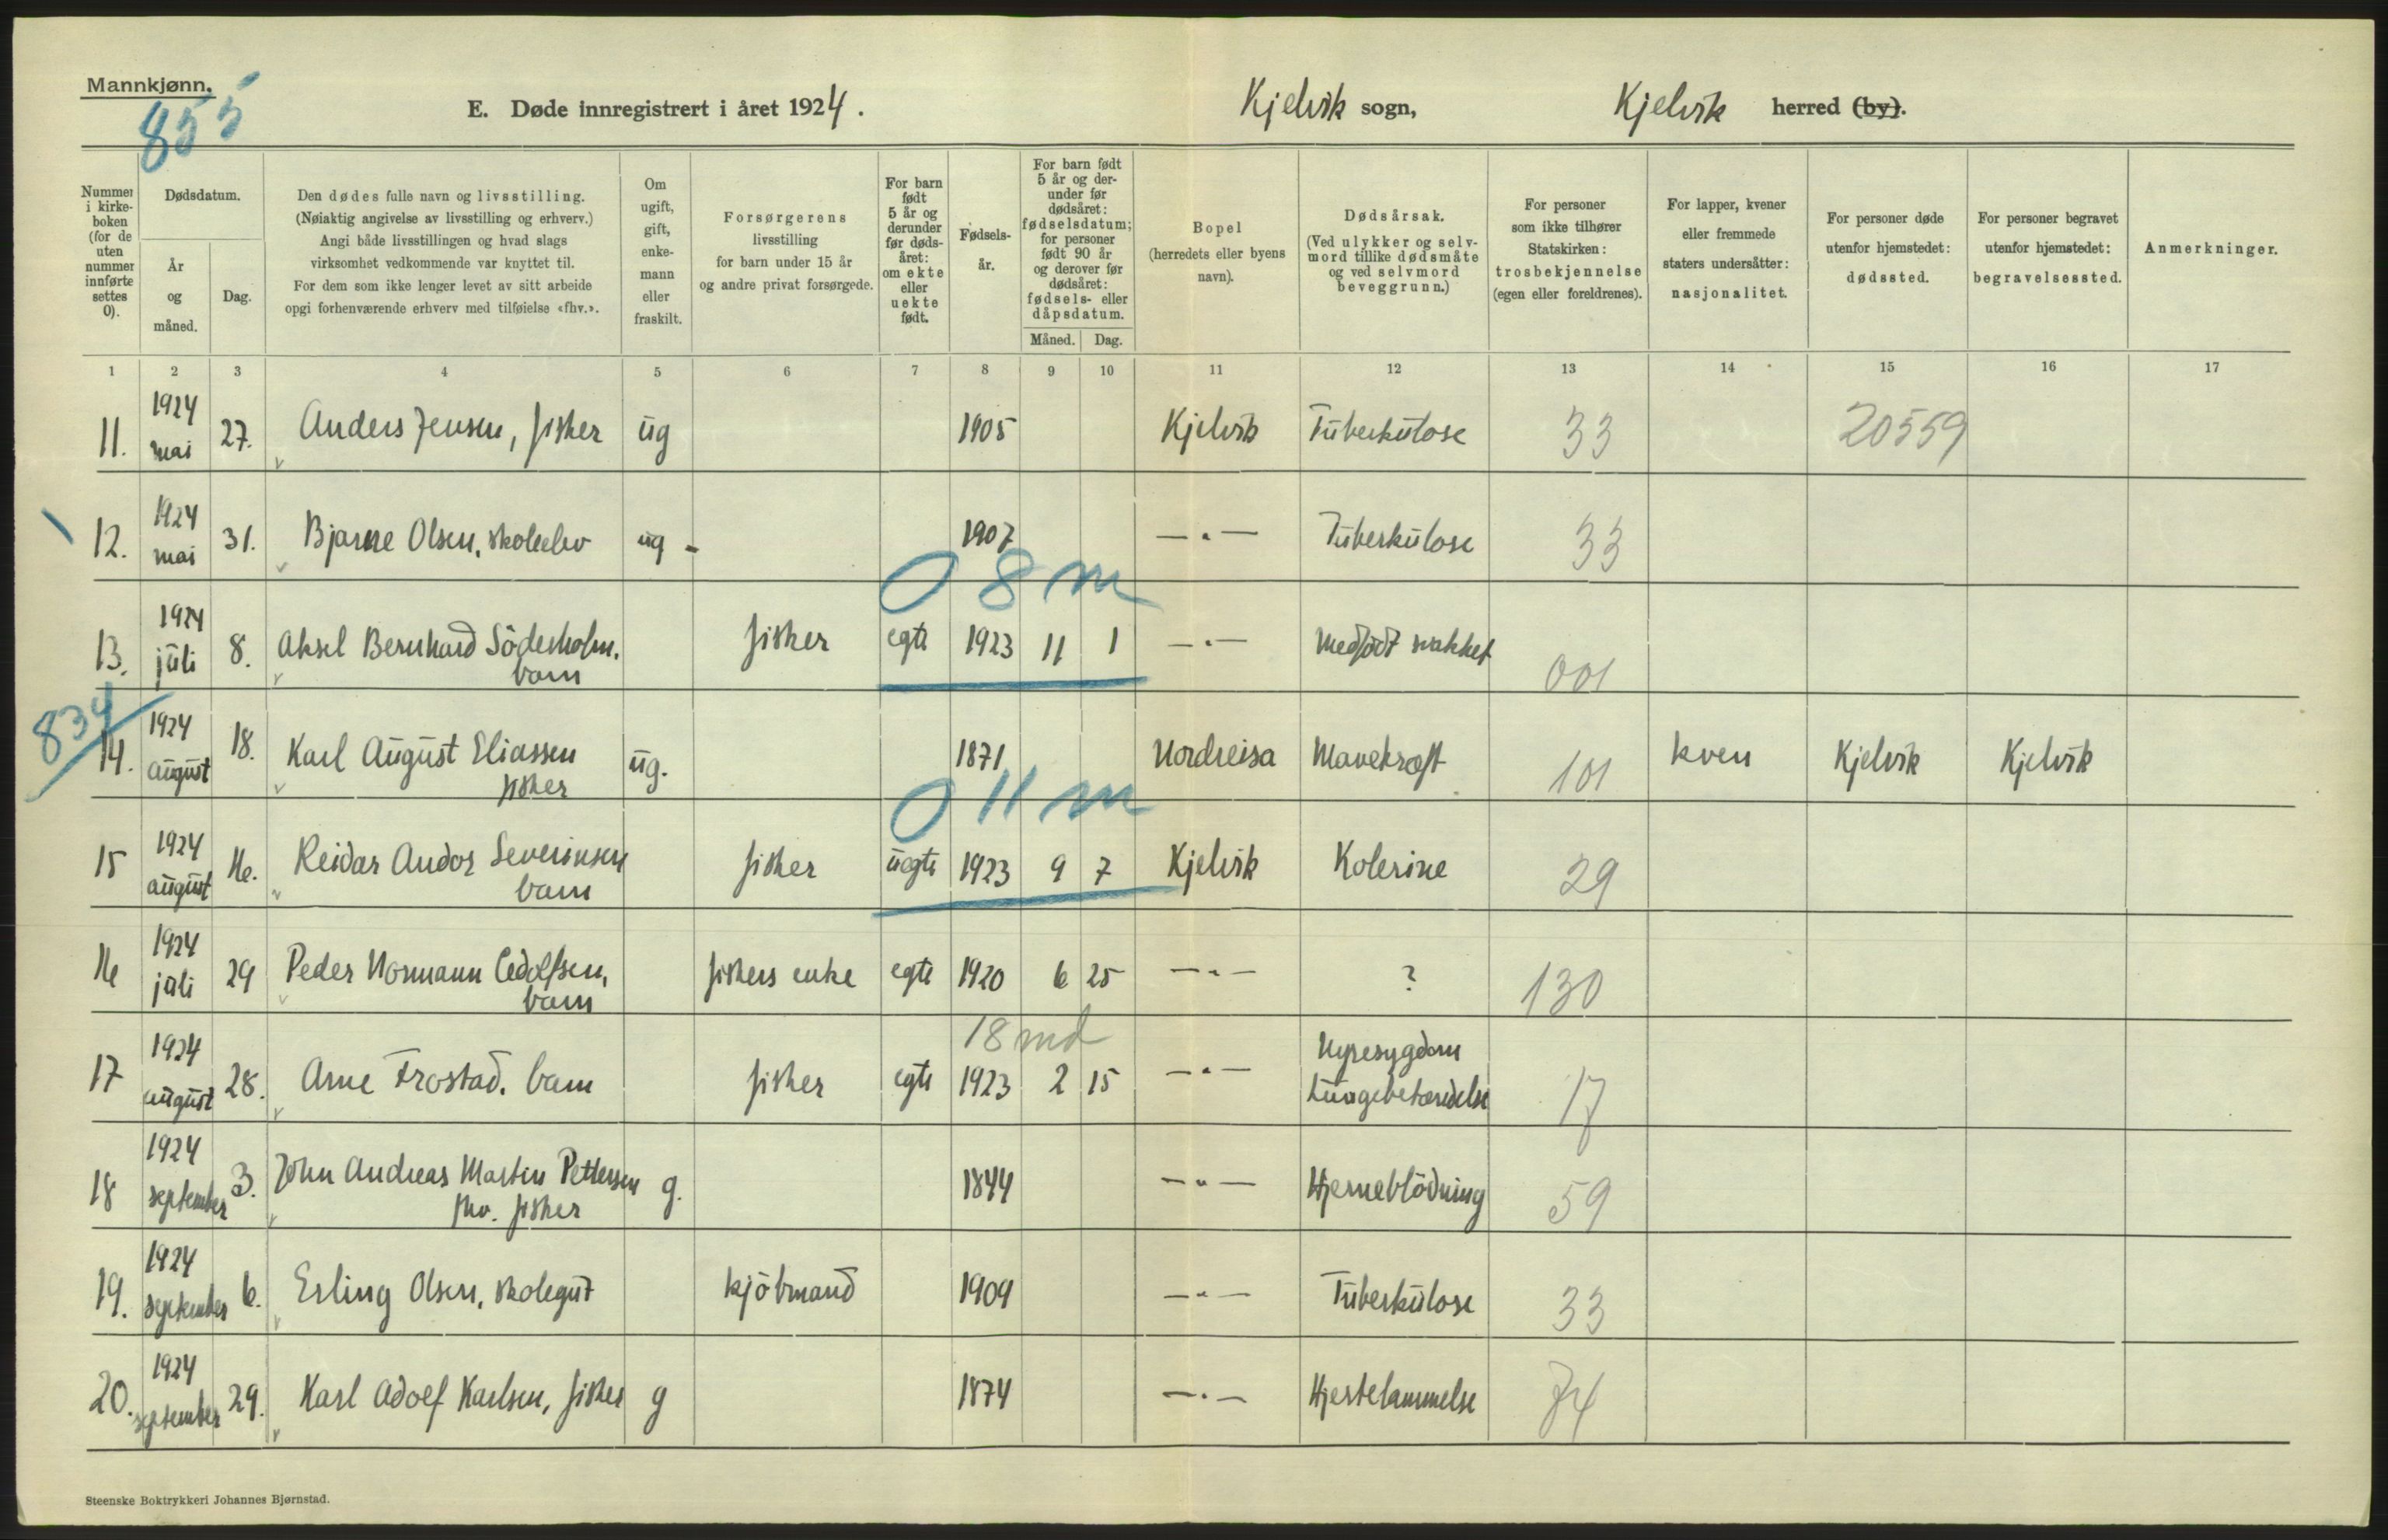 Mannkjønn.
855
E. Døde innregistrert i året 1924.
Kjelvik sogn,
Kjelvik herred (by).
Nummer i kirkeboken (for de uten nummer innførte settes 0).
Dødsdatum.
År og måned.
Dag.
Den dødes fulle navn og livsstilling.
(Nøiaktig angivelse av livsstilling og erhverv.)
Angi både livsstillingen og hvad slags
virksomhet vedkommende var knyttet til.
For dem som ikke lenger levet av sitt arbeide
opgi forhenværende erhverv med tilføielse «fhv.».
Om ugift, gift, enkemann eller fraskilt.
Forsørgerens
livsstilling
for barn under 15 år
og andre privat forsørgede.
For barn født 5 år og derunder før dødsåret: om ekte eller uekte født.
Fødselsår.
For barn født 5 år og derunder før dødsåret: fødselsdatum; for personer født 90 år og derover før dødsåret: fødsels- eller dåpsdatum.
Måned. Dag.
Bopel
(herredets eller byens
navn).
Dødsårsak.
(Ved ulykker og selvmord tillike dødsmåte og ved selvmord beveggrunn.)
For personer
som ikke tilhører
Statskirken:
trosbekjennelse
(egen eller foreldrenes).
For lapper, kvener
eller fremmede
staters undersåtter:
nasjonalitet.
For personer døde
utenfor hjemstedet:
dødssted.
For personer begravet
utenfor hjemstedet:
begravelsessted.
Anmerkninger.
1 2 3 4 5 6 7 8 9 10 11 12 13 14 15 16 17
11. 1924 mai 27. Anders Jensen, fisker ug 1905 Kjelvik Tuberkulose 33 20559
12. 1924 mai 31. Bjarne Olsen, skoleelev ug - 1907 —"— Tuberkulose 33
0 8 m
13. 1924 juli 8. Aksel Bernhard Söderholm, barn fisker egte 1923 11 1 —"— Medfødt svakhet 001
834
14. 1924 august 18. Karl August Eliassen fisker ug. 1871 Nordreisa Mavekræft 101 kven Kjelvik Kjelvik
0 11 m
15 1924 august 16. Reidar Andor Severinsen barn fisker uegte 1923 9 7 Kjelvik Kolerine 29
16 1924 juli 29 Peder Normann Edolfsen, barn fiskers enke egte 1920 6 25 —"— ? 130
18 md
17 1924 august 28. Arne Frostad. barn fisker egte 1923 2 15 —"— Nyresygdom Lungebetændelse 17
18 1924 september 3. John Andreas Martin Pettersen fhv. fisker g. 1844 —"— Hjerneblödning 59
19. 1924 september 6. Erling Olsen, skolegut kjöbmand 1909 —"— Tuberkulose 33
20. 1924 september 29. Karl Adolf Karlsen, fisker g 1874 —"— Hjertelammelse 74
Steenske Boktrykkeri Johannes Bjørnstad.